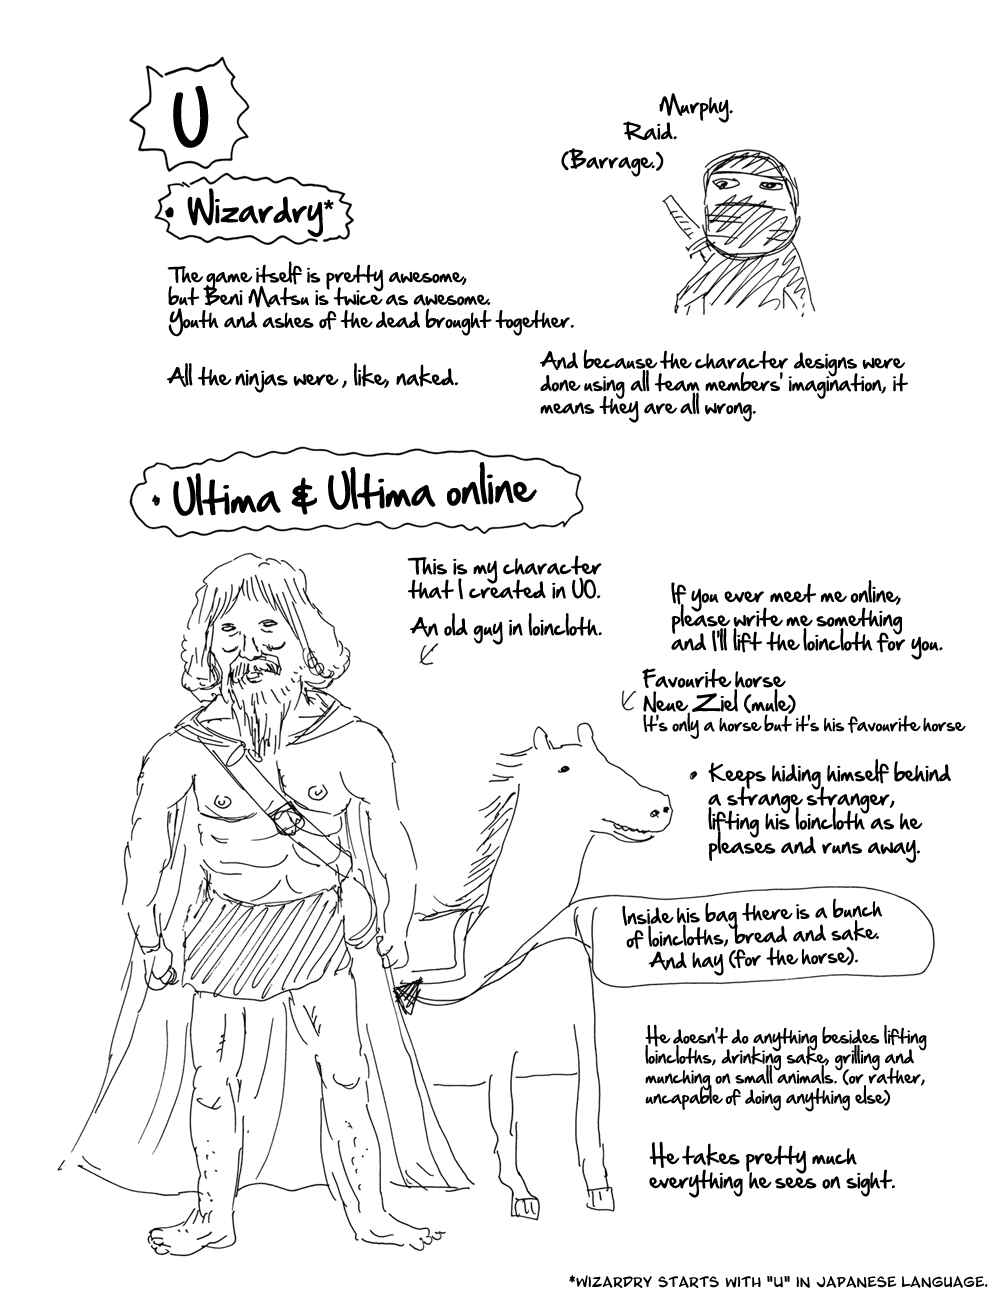 U
• Wizardry*
The game itself is pretty awesome,
but Beni Matsu is twice as awesome.
Youth and ashes of the dead brought together.
All the ninjas were , like, naked.
Murphy.
Raid.
(Barrage.)
And because the character designs were
done using all team members' imagination, it
means they are all wrong.
• Ultima & Ultima online
This is my character
that I created in UO.
An old guy in loincloth.
If you ever meet me online,
please write me something
and I'll lift the loincloth for you.
Favourite horse
Neue Ziel (mule)
It's only a horse but it's his favourite horse
• Keeps hiding himself behind
a strange stranger,
lifting his loincloth as he
pleases and runs away.
Inside his bag there is a bunch
of loincloths, bread and sake.
And hay (for the horse).
He doesn't do anything besides lifting
loincloths, drinking sake, grilling and
munching on small animals. (or rather,
uncapable of doing anything else)
He takes pretty much
everything he sees on sight.
*WIZARDRY STARTS WITH "U" IN JAPANESE LANGUAGE.